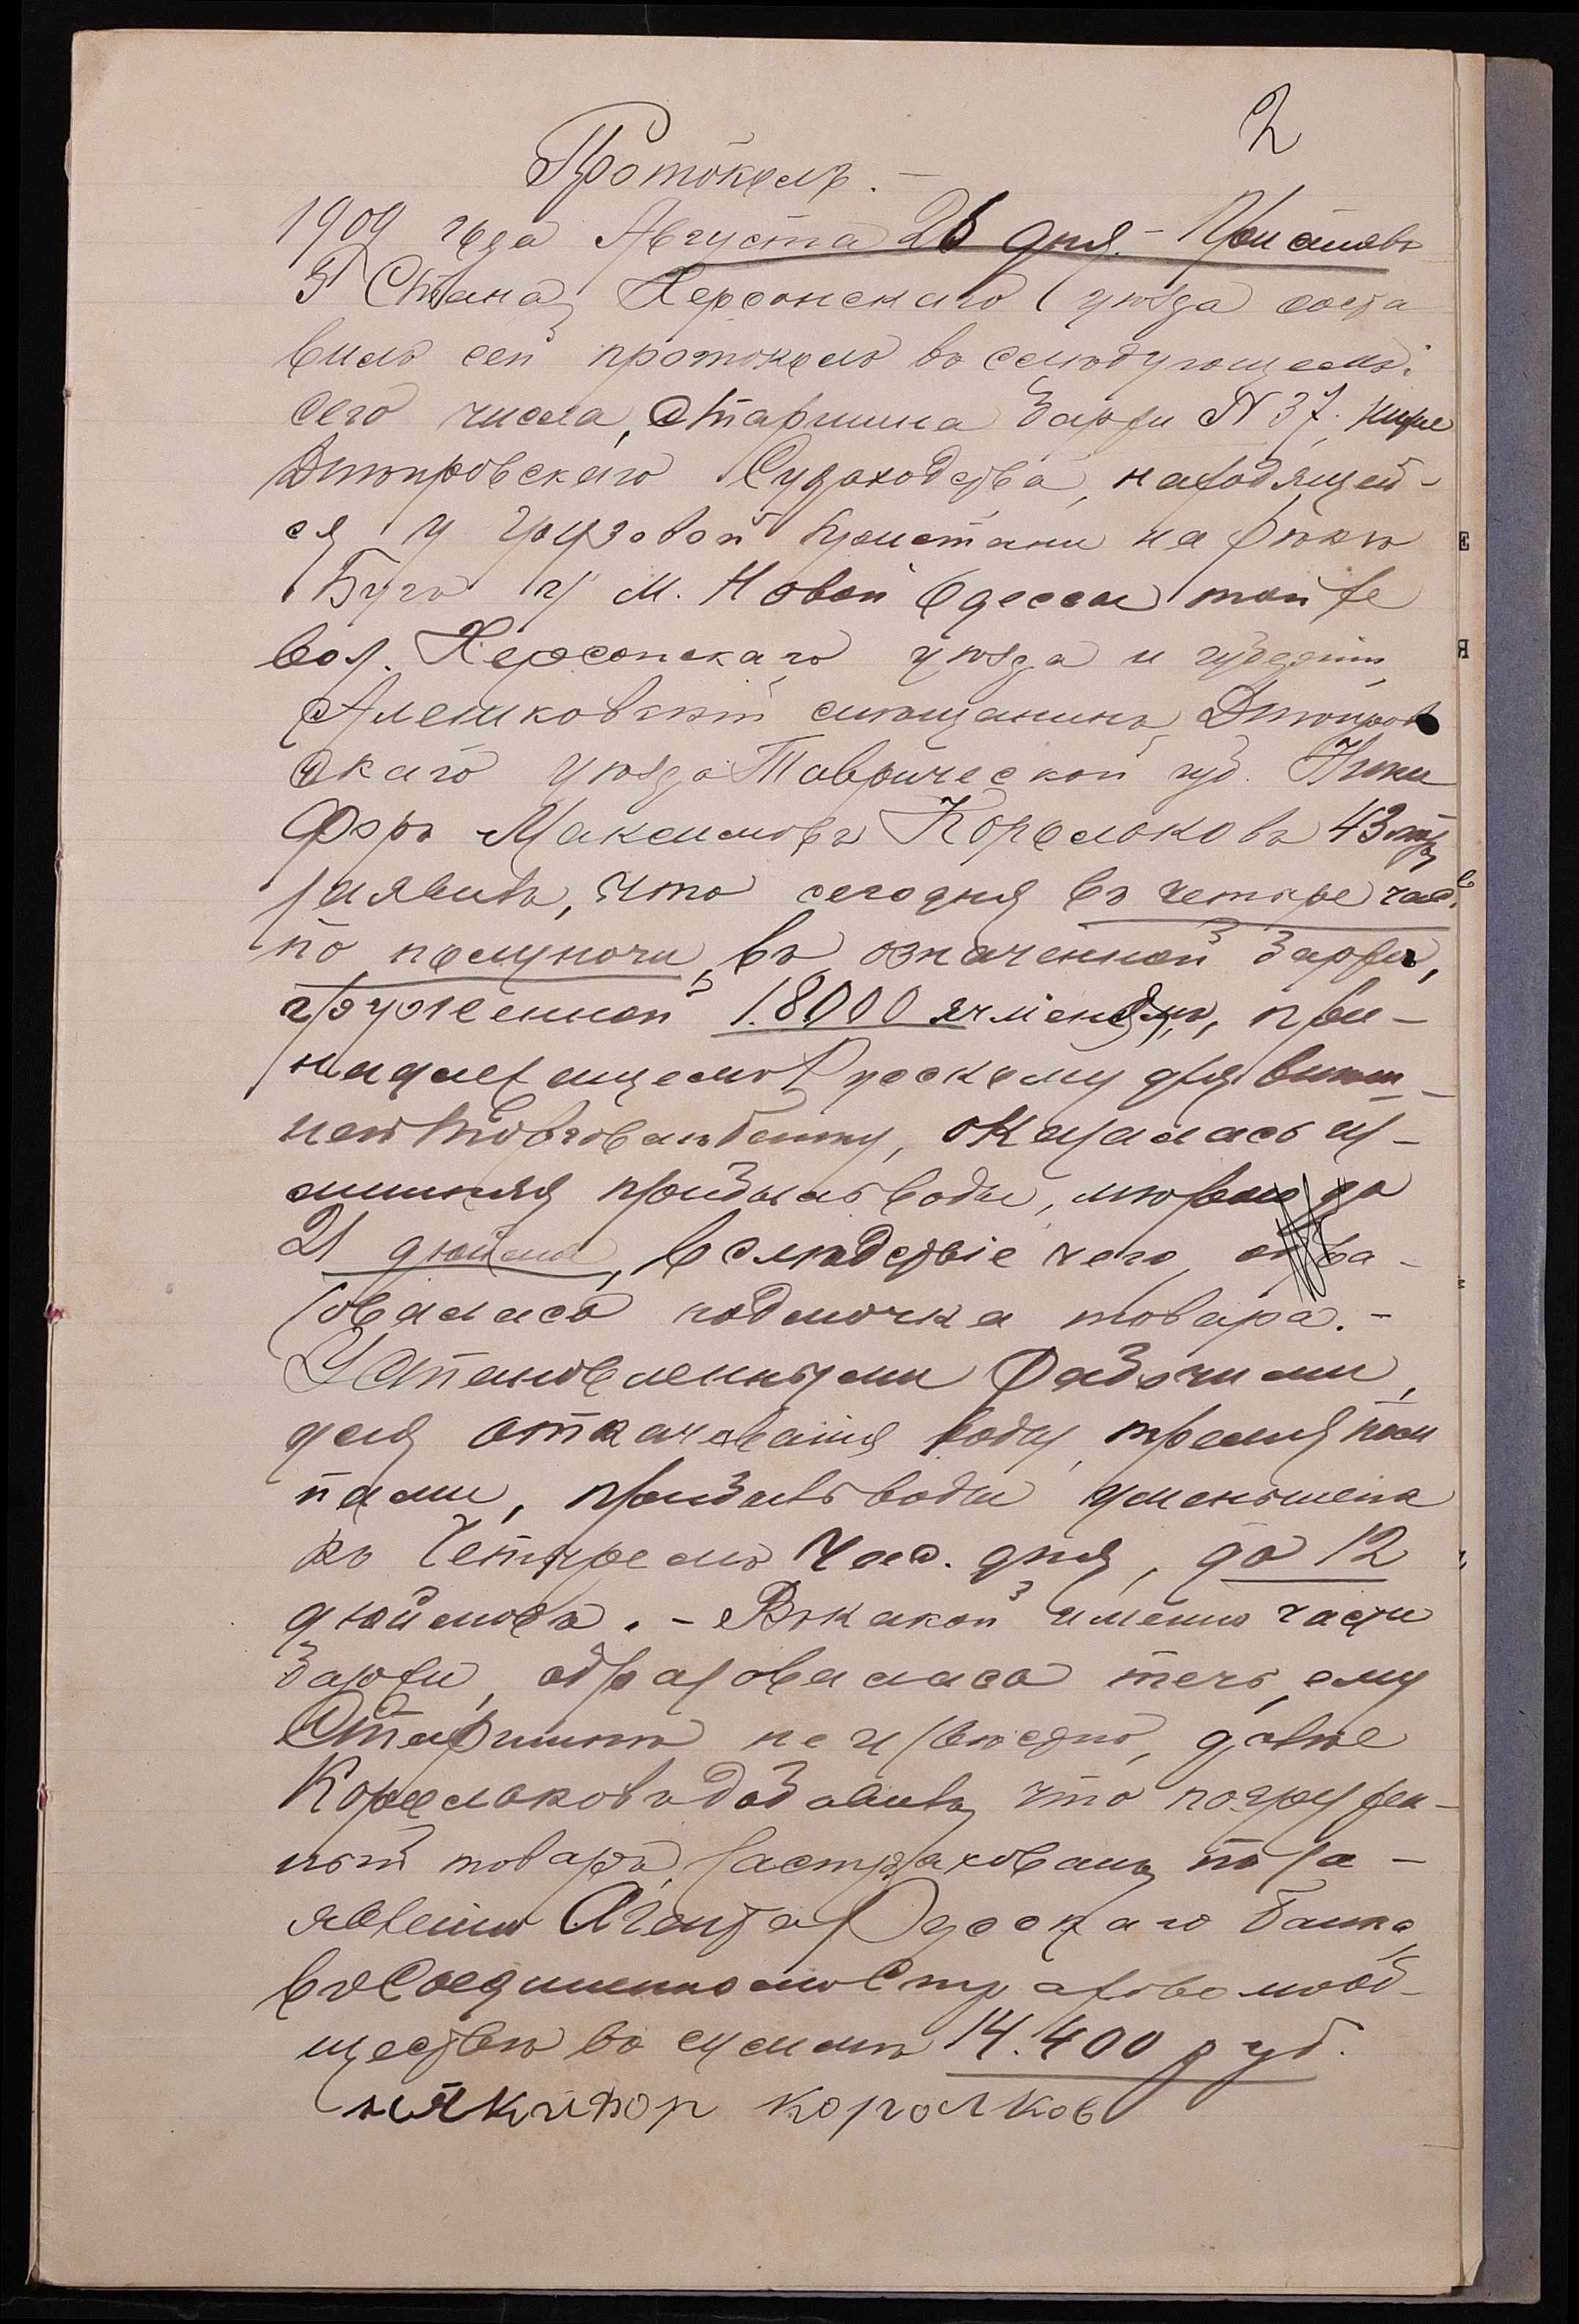 2
Протоколъ. —
1909 года Августа 26 дня. — Приставъ
Стана, Херсонскаго уѣзда соста
вилъ сей протоколъ въ слѣдующемъ:
Сего числа, Старшина баржи № 37, Нижне
Днѣпровскаго Судоходства, находящей-
ся у грузовой пристани на рѣкѣ
Бугъ у м. Новой Одессы той же
вол. Херсонскаго уѣзда и губерніи,
Алешковскій мѣщанинъ, Днѣпров
скаго уѣзда Таврической губ. Ники
форъ Максимовъ Корольковъ 43 лѣтъ,
заявилъ, что сегодня въ четыре час.
по полуночи, въ означенной баржѣ,
груженной 18000 ячменемъ, при-
надлежащемъ Русскому для внѣш-
ней торговли банку, оказалась из-
лишняя прибыль воды, мѣрою до
21 дюйма, вслѣдствіе чего, обра-
зовалась подмочка товара. —
Установленными рабочими,
для откачеванія воды, тремя пом
пами, прибыль воды уменьшена
къ четыремъ час. дня, до 12
дюймовъ. — Въ какой именно части
баржи, образовалась течь, ему
Старшинѣ не извѣстно, далѣе
Корольковъ добавилъ, что погружен-
ный товаръ, застрахованъ по за-
явленію Агента Русскаго банка,
въ Соединенномъ Страховомъ об-
ществѣ въ суммѣ 14.400 руб.
някифор корольков